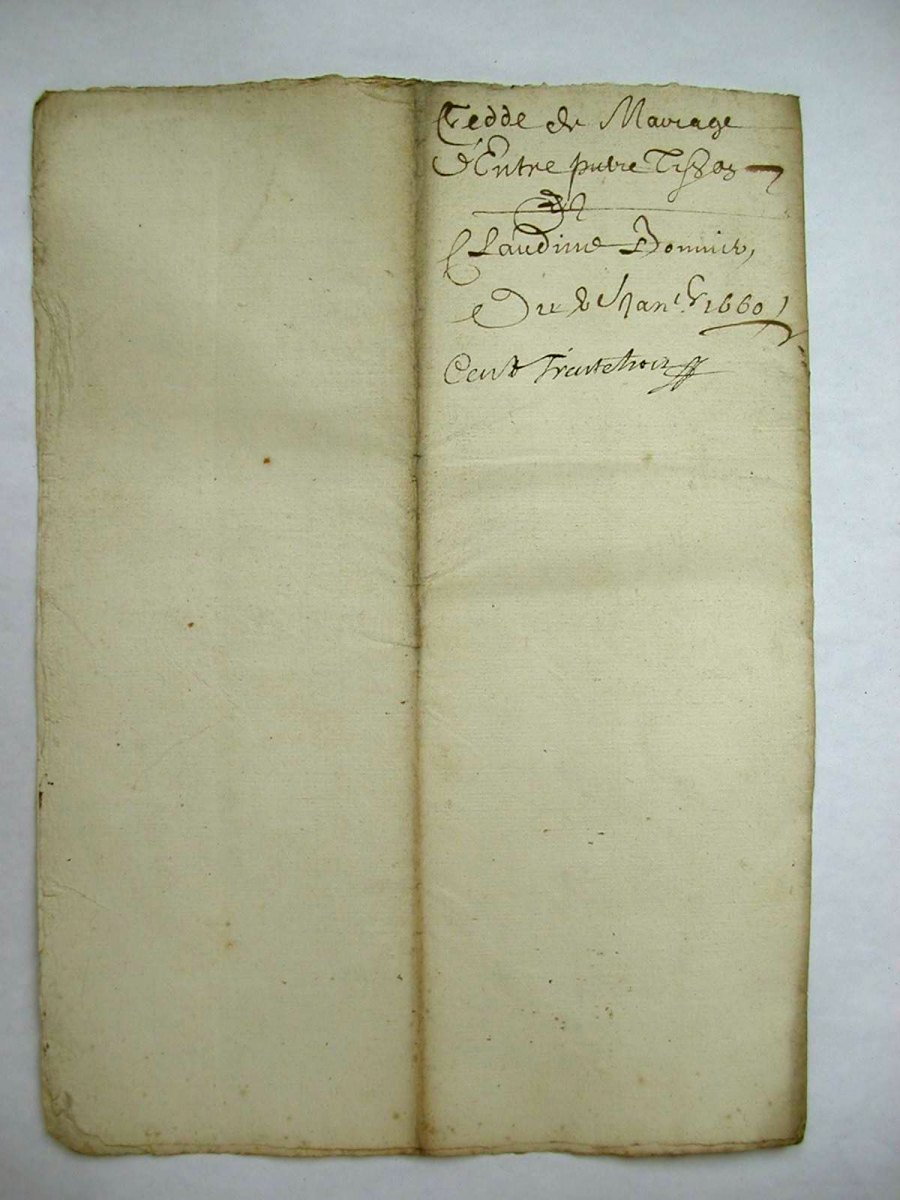 Cedde de Mariage
d'Entre pierre Tissot
Et
Claudine Bonnier,
Du 8 Janr. 1660
Cent Trentetrois